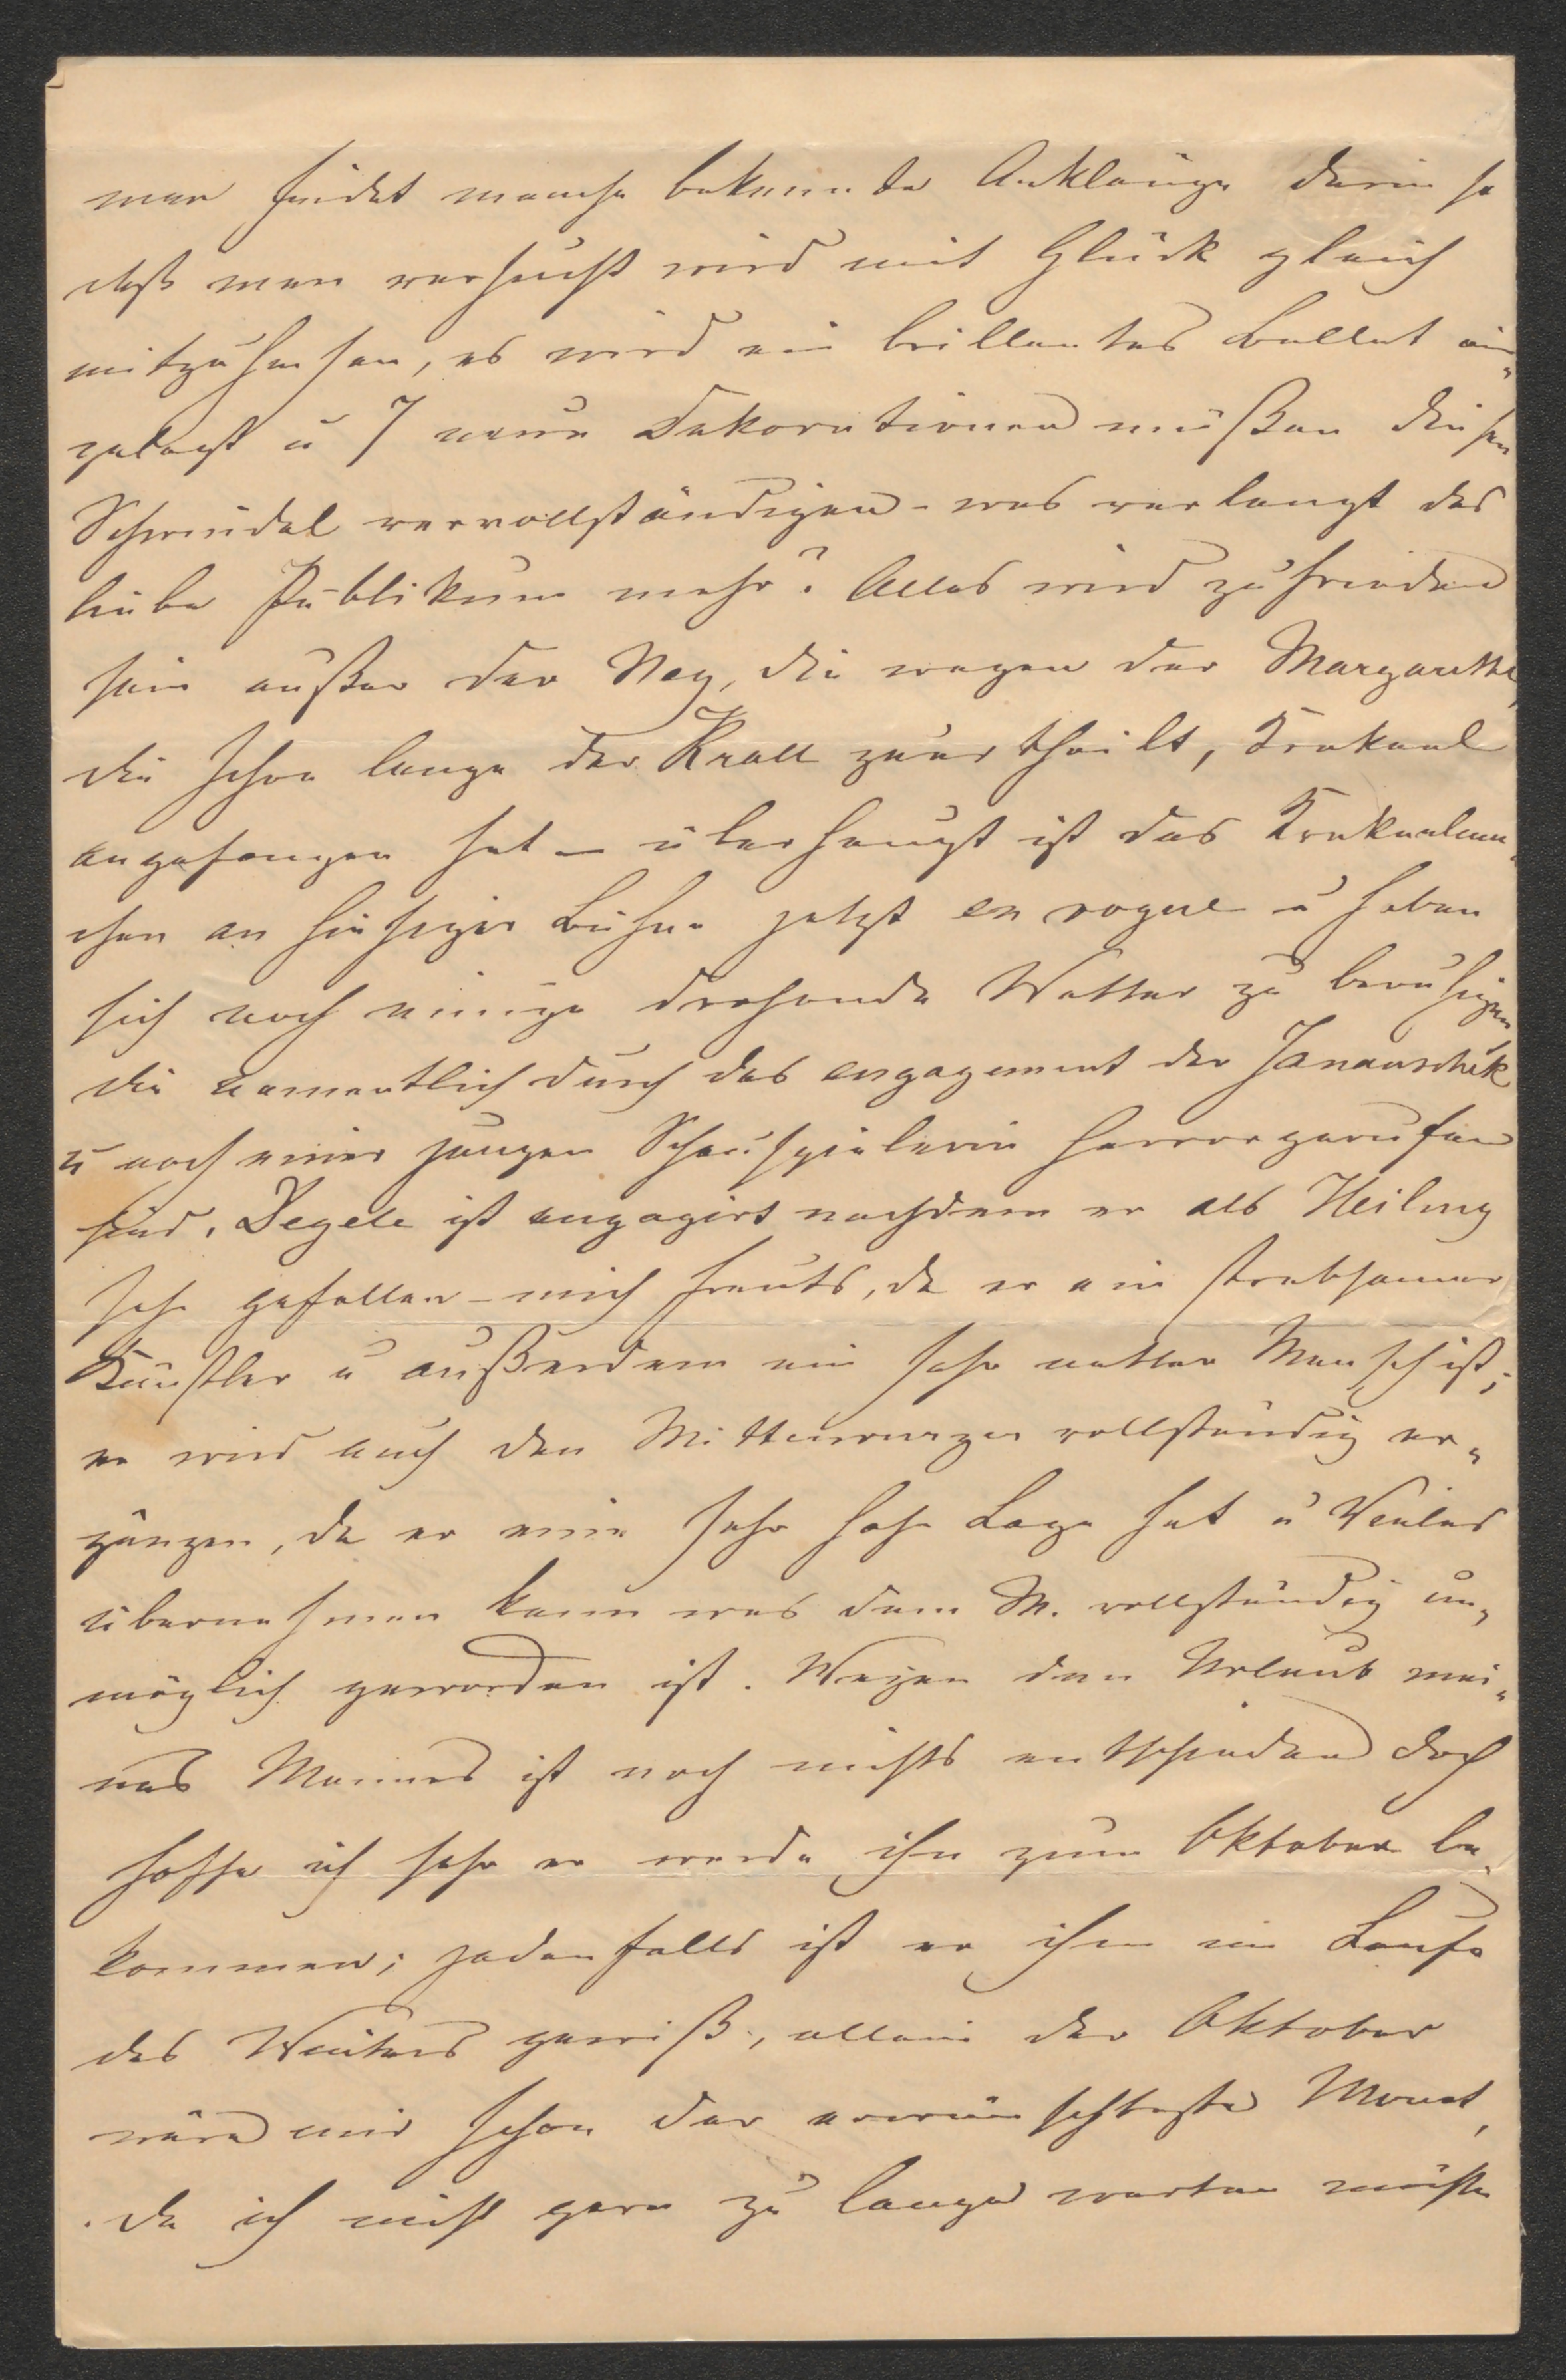 man findet manche bekannte Anklänge darin so
daß man versucht wird mit Glück gleich
mitzusumsen, es wird ein brillantes Ballet ein-
gelegt u 7 neue Dekorationen müßen diesen
Schwindel vervollständigen - was verlangt das
liebe Publikum mehr? Alles wird zufrieden
sein außer der Ney, die wegen der Margarethe,
die schon lange der Krall zuertheilt, Krakeel
angefangen hat – überhaupt ist das Krakeelma-
chen an hiesiger Bühne jetzt en vogue u haben
sich noch einige drohende Wetter zu beruhigen
die namentlich durch das engagement der Janauschek
u noch einer jungen Schauspielerin hervorgerufen
sind. Degele ist engagirt nachdem er als Heiling
sehr gefallen - mich freuts, da er ein strebsamer
Künstler u außerdem ein sehr netter Mensch ist;
er wird auch den Mitterwurzer vollständig er-
gänzen, da er eine sehr hohe Lage hat u Vieles
übernehmen kann was dem M. vollständig un-
möglich geworden ist. Wegen dem Urlaub mei-
nes Mannes ist noch nichts entschieden doch
hoffe ich sehr er werde ihn zum Oktober be-
kommen; jedenfalls ist er ihm im Laufe
des Winters gewiß, allein der Oktober
wäre mir schon der erwünschteste Monat,
da ich nicht gern zu lange warten möchte